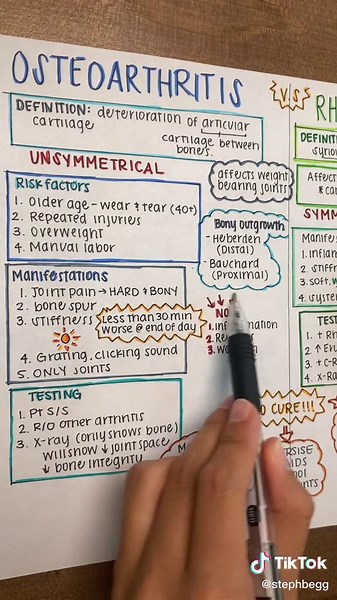 OSTEOARTHRITIS
V.S
RH
DEFINITION: deterioration of articular
cartilage
cartilage between
bones.
UNSYMMETRICAL
affects weight
bearing joints
Risk factors
1. Older age - wear & tear (40+)
2. Repeated injuries
3. Overweight
4. Manual labor
Bony outgrowth
- Heberden
(Distal)
- Bauchard
(Proximal)
Manifestations
1. Joint pain → HARD & BONY
2. bone spur
3. stiffness
Less than 30 min
worse @ end of day
4. Grating, clicking sound
5. ONLY joints
↓ ↓
NO
2. Re
3. wa
TESTING
1. Pt S/S
2. R/O other arthritis
3. X-ray (only shows bone)
Will show ↓ joint space
↓ bone integrity
NO CURE!!!
DEFINITI
syno
Affect
& ca
SYMM
Manife
1. inflam
2. stiff
3. soft, w
4. syste
TEST
1. + R
2. ↑ E
3. + C-R
4. X-Ra
TikTok
@stephbegg